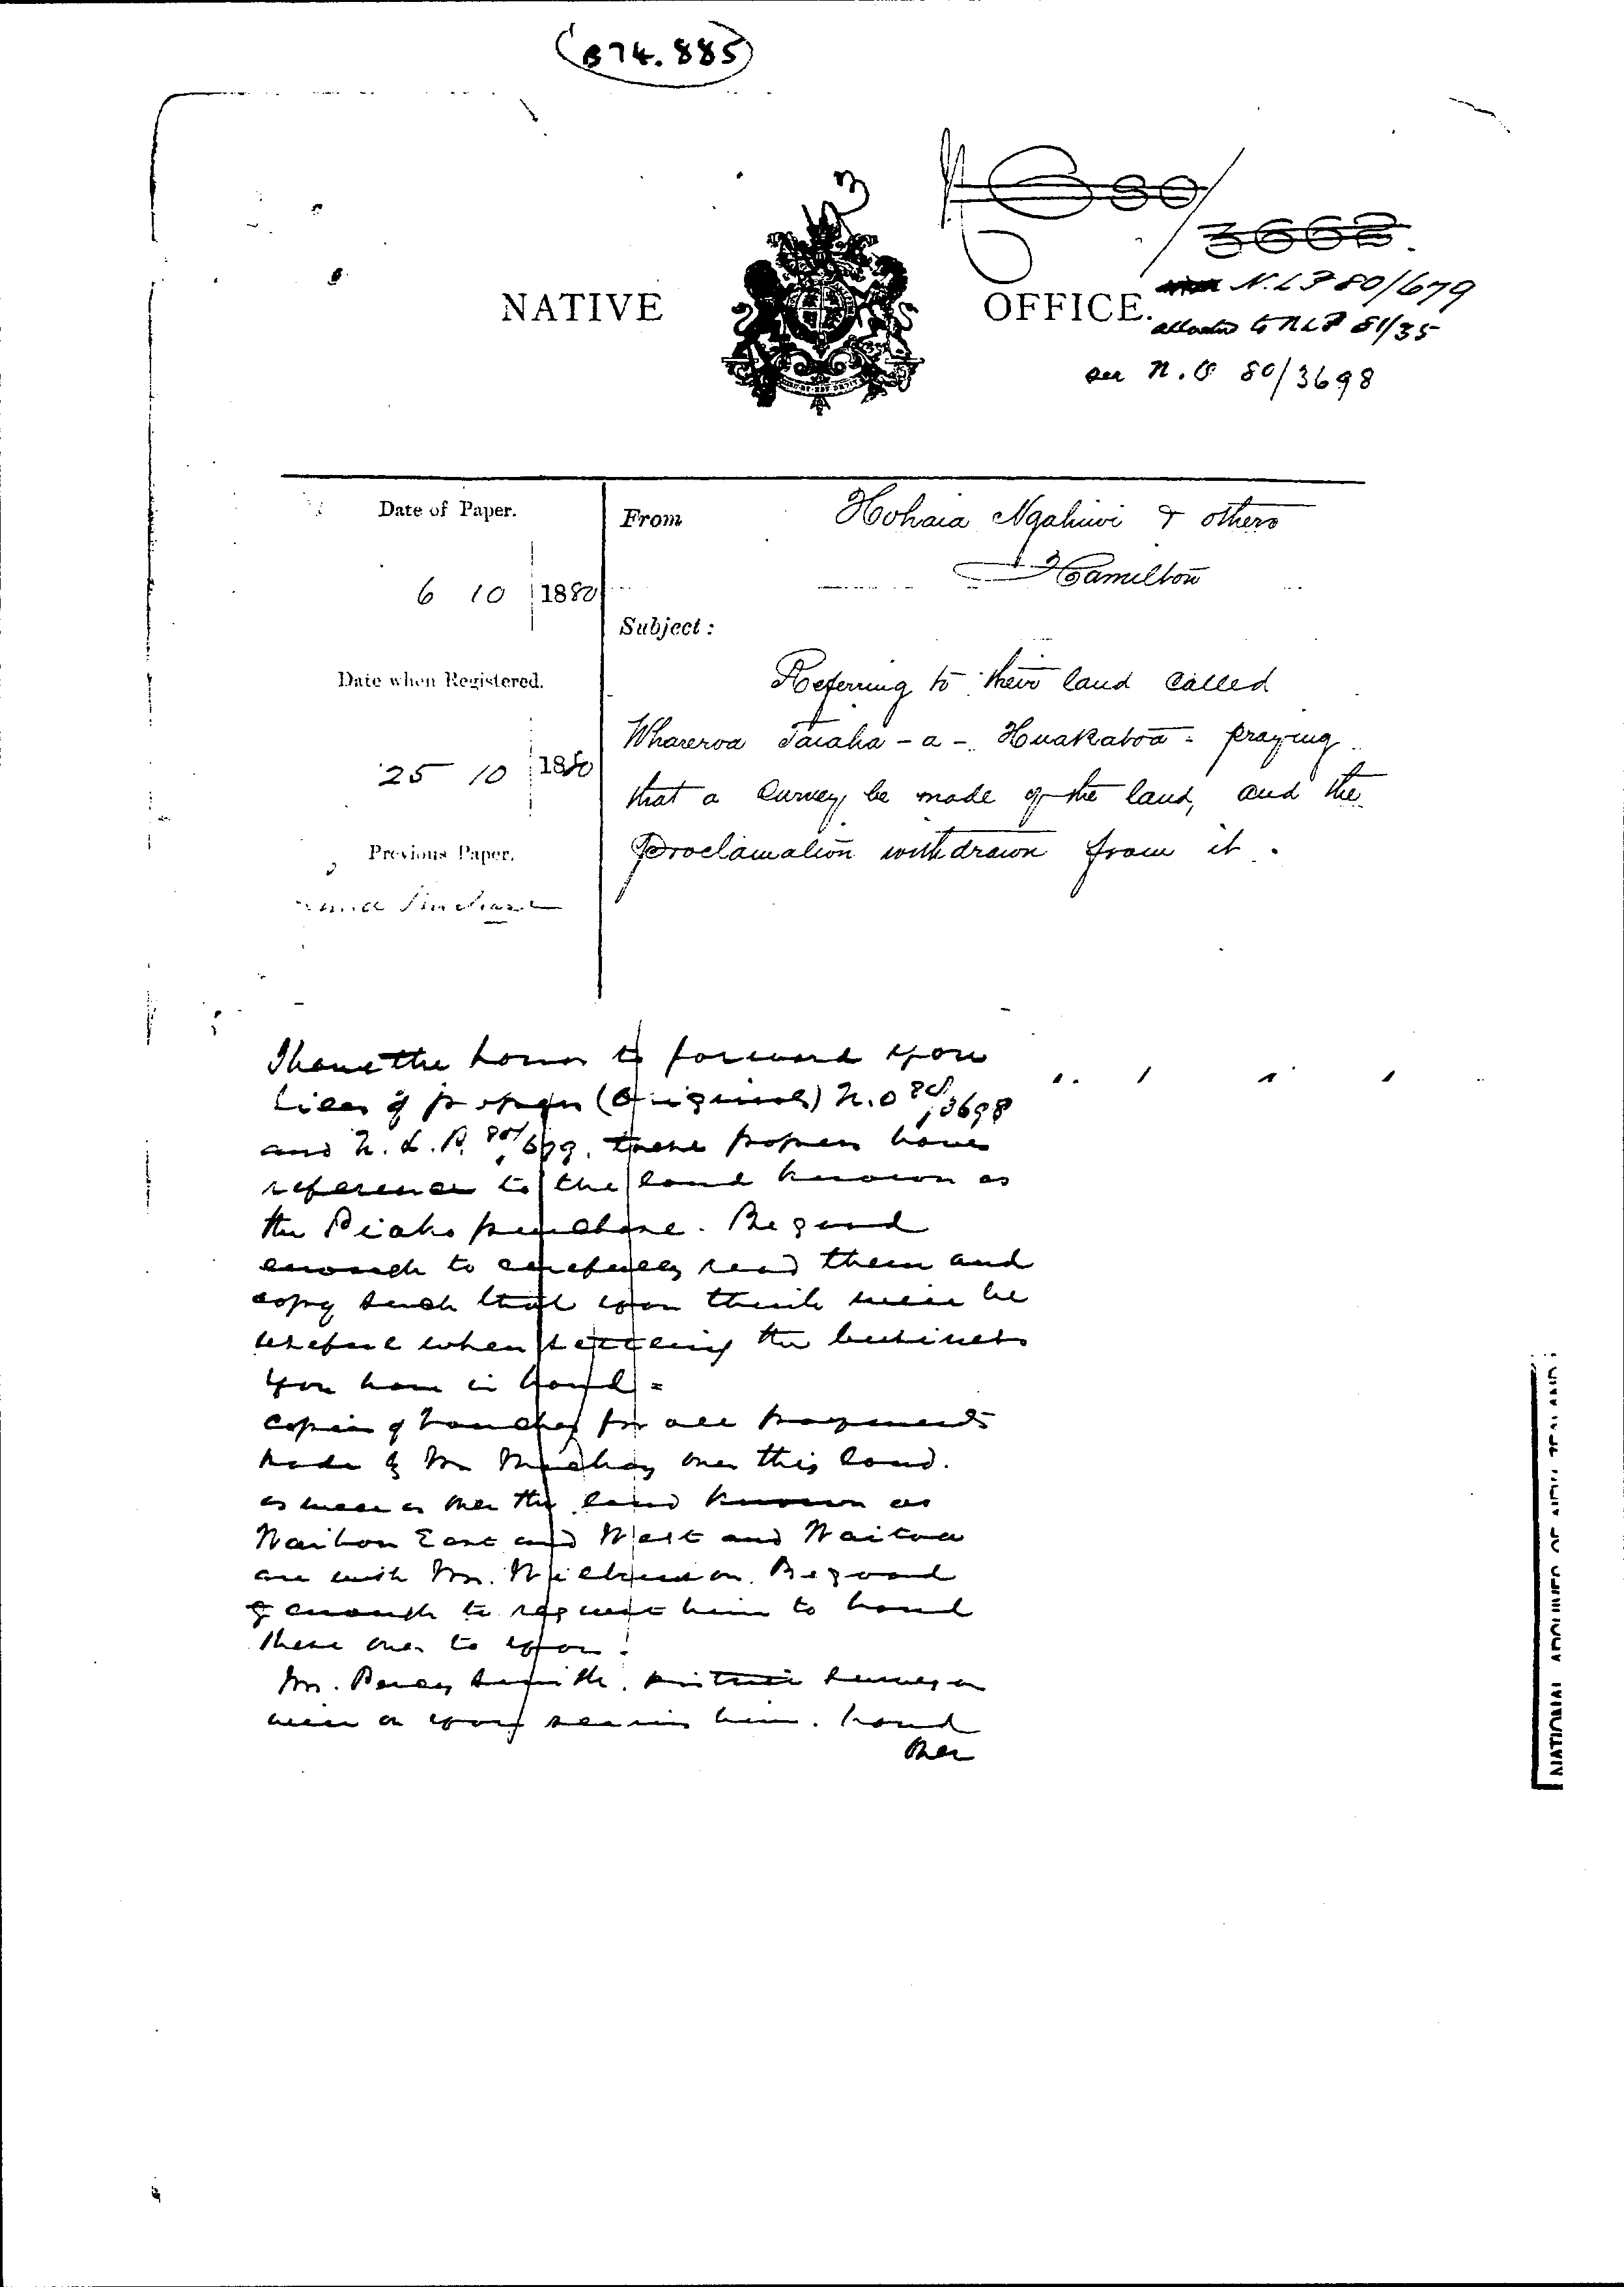 B74.885
80/
3662.
NATIVE OFFICE.
N.L.P 80/679
attached to NLP 81/35
see N.O 80/3698
Date of Paper.
From Hohaia Ngahiwi & others
Hamilton
6 10 1880
Subject:
Date when Registered.
Referring to their land called
Wharerva Taiaha-a-Huakatoa: praying
25 10 1880
that a Survey be made of the land, and the
Previous Paper.
Proclamation withdrawn from it.
I have the honor to forward you
files of papers (Originals) N.O 80/3698
and N.L.P. 80/679. these papers have
reference to the land known as
the Piako purchase. Be good
enough to carefully read them and
copy such that you think will be
useful when settling the business
you have in hand =
copies of vouchers for all payments
made by Mr Mackay over this land.
as well as over the land known as
Waihou East and West and Waitoa
are with Mr. Wilkinson. Be good
enough to request him to hand
these over to you.
Mr. Percy Smith. District Surveyor
will on your seeing him. hand
over
NATIONAL ARCHIVES OF NEW ZEALAND